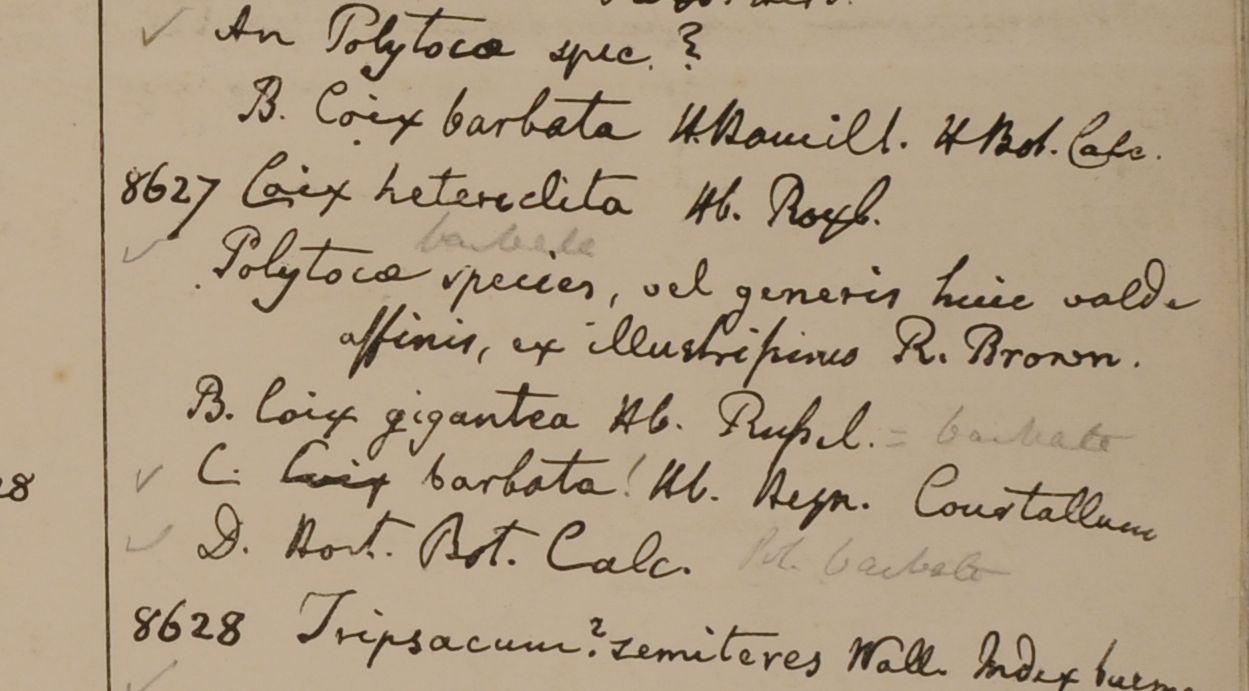 An Polytocæ spec. ?
B. Coix barbata H. Hamill. H Bot. Calc.
8627 Coix heteroclita Hb. Roxb.
barbata
Polytocæ species, vel generis huic valde
affinis, ex illustrissimo R. Brown.
B. Coix gigantea Hb. Russel. = barbata
C. Coix barbata! Hb. Heyn. Courtallum
D. Hort. Bot. Calc. Pol. barbata
8628 Tripsacum? semiteres Wall. Index